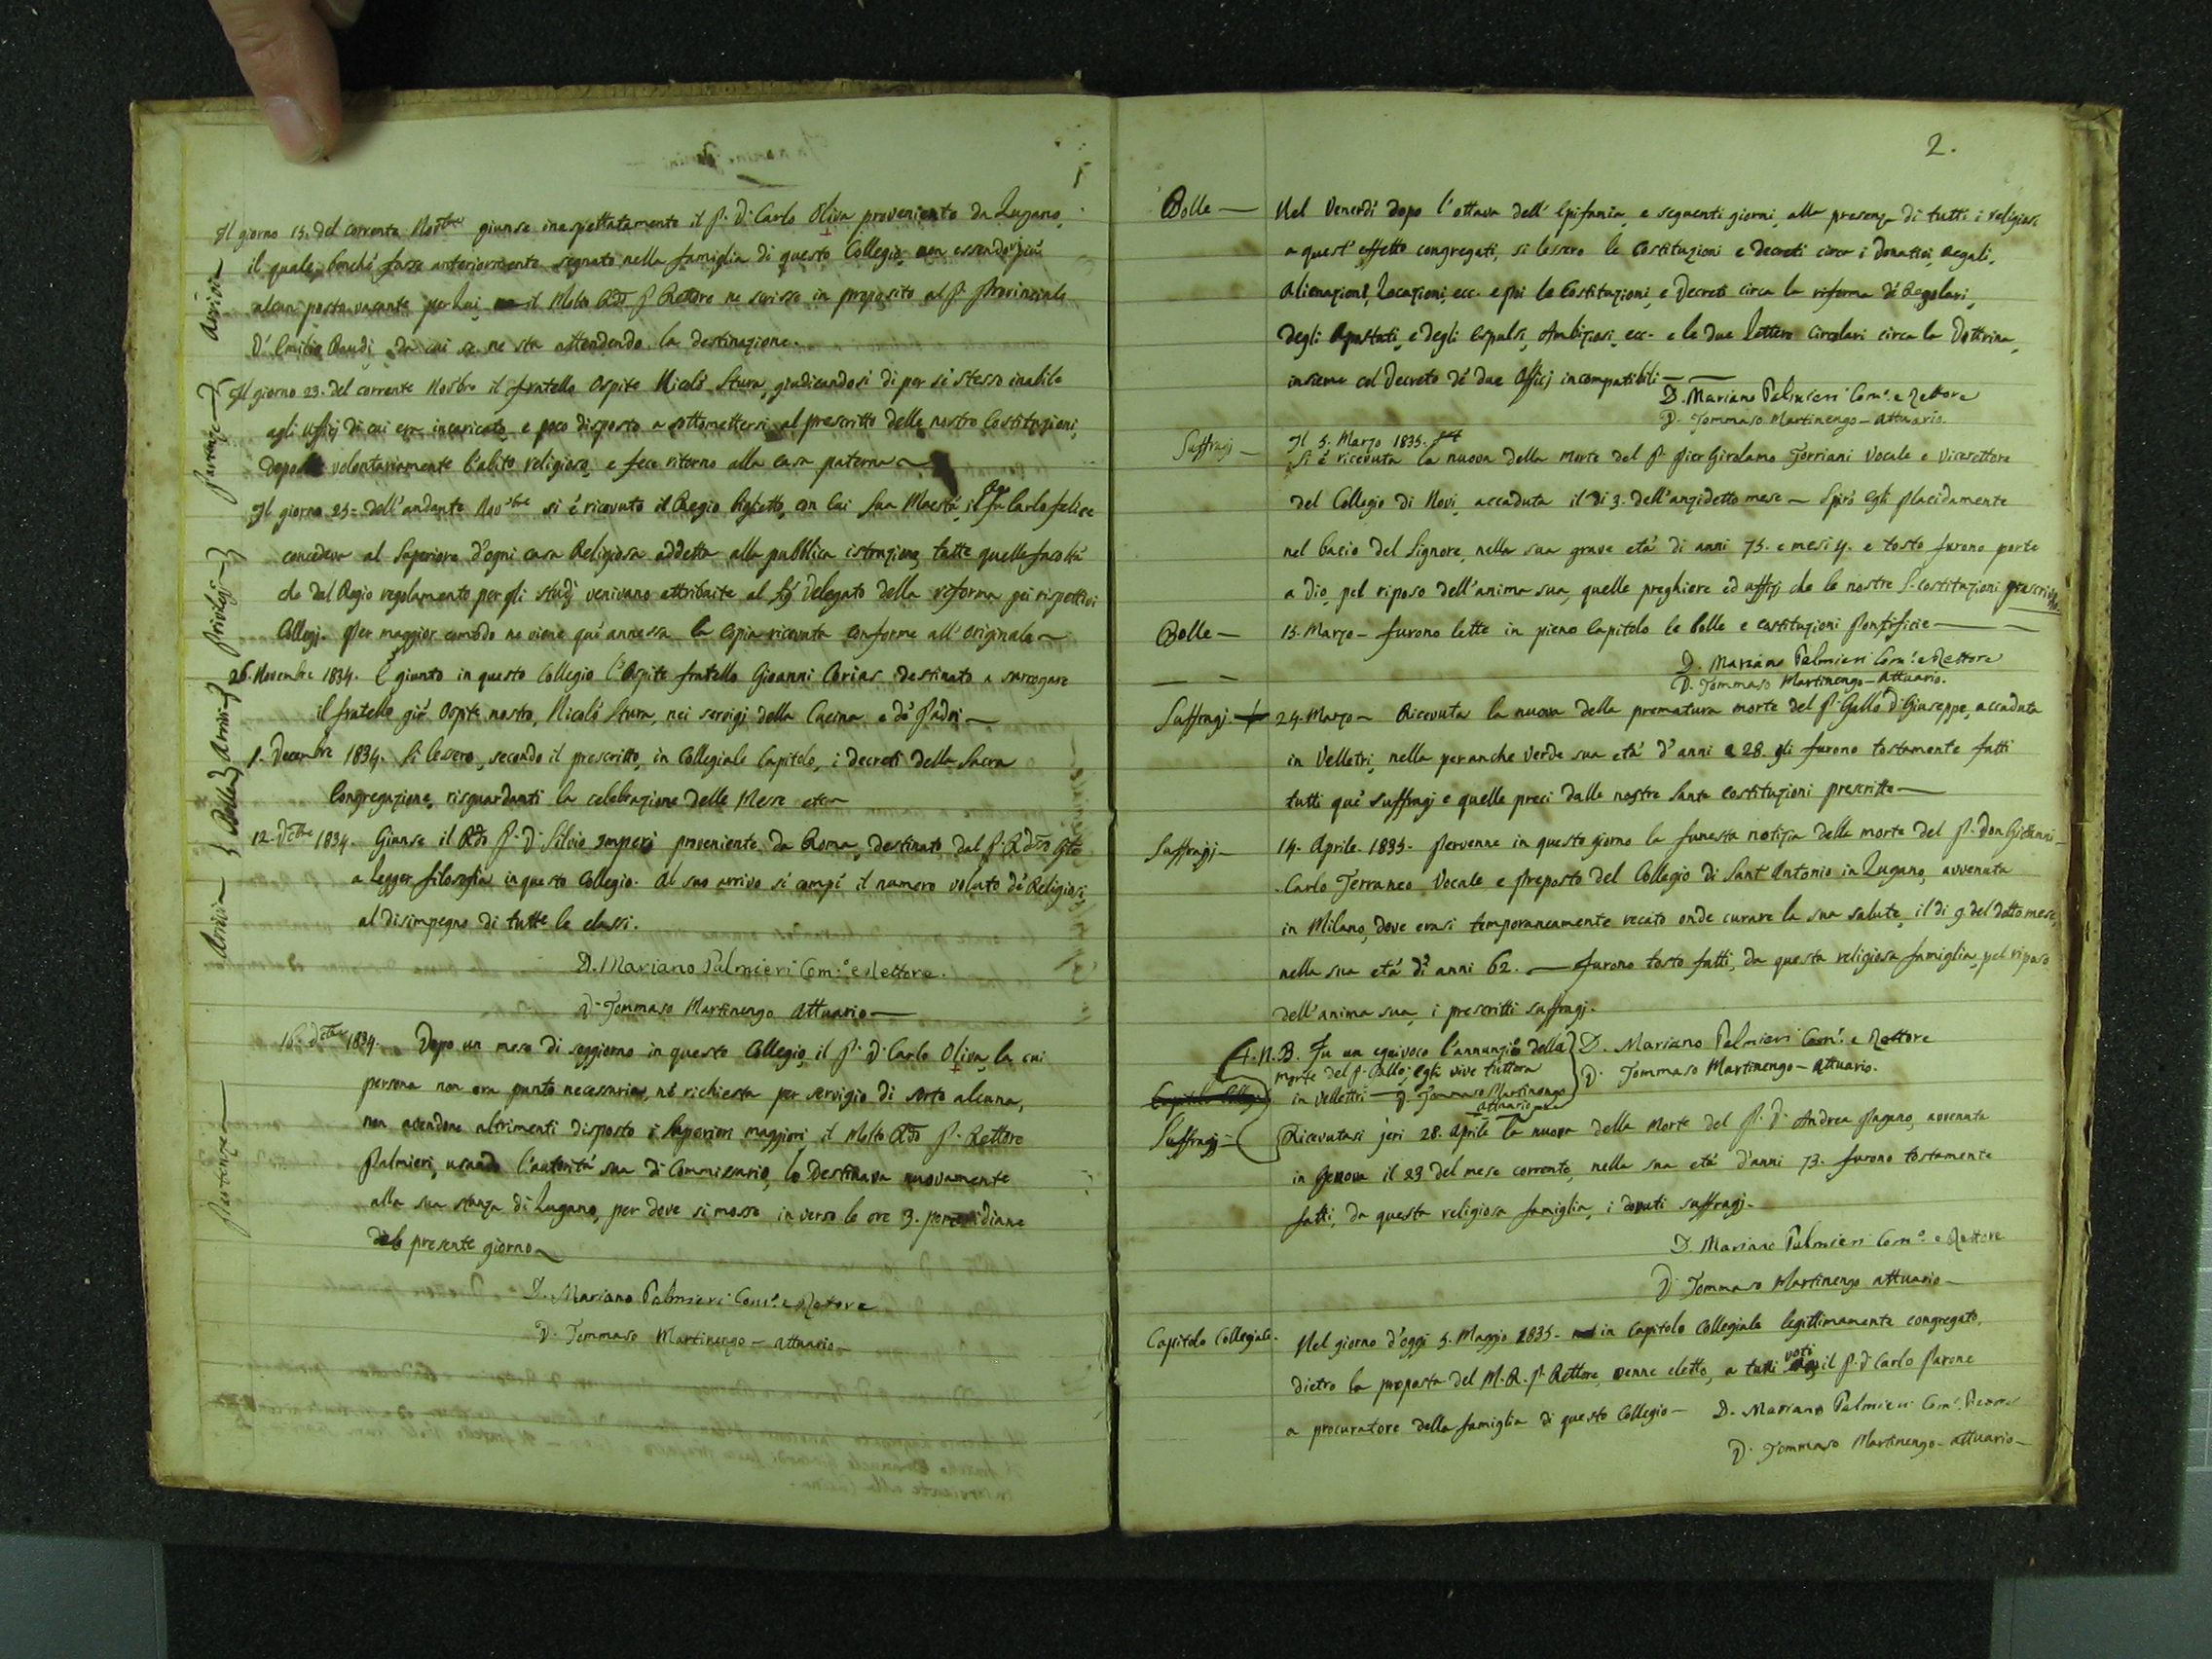 Arrivi
Il giorno 15. del corrente Nov.bre giunse inaspettatamente il P. D. Carlo Oliva proveniente da Lugano,
il quale, benché fosse anteriormente segnato nella famiglia di questo Collegio, non essendovi più
alcun posto vacante per lui, il Molto Rdo P. Rettore ne scrisse in proposito al P. Provinciale
D. Emilio Baudi, da cui se ne sta attendendo la destinazione.
Partenze
Il giorno 23. del corrente Nov.bre il fratello Ospite Nicolò Stura, giudicandosi di per sé stesso inabile
agli Ufficj di cui era incaricato, e poco disposto a sottomettersi al prescritto delle nostre Costituzioni,
depose volontariamente l'abito religioso, e fece ritorno alla casa paterna
Privilegj
Il giorno 25 = dell'andante Nov.bre si è ricevuto il Regio biglietto, con cui Sua Maestà, il Re fu Carlo felice
concedeva al Superiore d'ogni casa Religiosa addetta alla pubblica istruzione, tutte quelle facoltà
che dal Regio regolamento per gli studj venivano attribuite al Sig. Delegato della riforma pei rispettivi
Collegj. Per maggior comodo ne viene quì annessa la copia ricevuta conforme all'originale
Arrivi
26. Novembre 1834. È giunto in questo Collegio l'Ospite fratello Gioanni Corias destinato a surrogare
il fratello già Ospite nostro, Nicolò Stura, nei servigj della Cucina e dè Padri
Bolle
1. Decembre 1834. Si lessero, secondo il prescritto, in Collegiale Capitolo, i decreti della Sacra
Congregazione, risguardanti la celebrazione delle Messe etc
Arrivi
12. Dcbre 1834. Giunse il Rdo P. D. Silvio Imperi proveniente da Roma, destinato dal P. Rdmo Gle
a legger filosofia in questo Collegio. Al suo arrivo si compì il numero voluto dè Religiosi,
al disimpegno di tutte le classi.
D. Mariano Palmieri Com.o e Rettore.
D. Tommaso Martinengo Attuario
Partenze
16. Dcbre 1834. Dopo un mese di soggiorno in questo Collegio, il P. D. Carlo Oliva, la cui
persona non era punto necessaria, nè richiesta per servigio di sorta alcuna,
non avendone altrimenti disposto i Superiori maggiori, il Molto Rdo P. Rettore
Palmieri, usando l'autorità sua di Commissario, lo destinava nuovamente
alla sua stanza di Lugano, per dove si mosse in verso le ore 3. pomeridiane
del presente giorno
D. Mariano Palmieri Com.o e Rettore
D. Tommaso Martinengo – Attuario
2.
Bolle — Nel Venerdì dopo l'ottava dell'Epifania, e seguenti giorni, alla presenza di tutti i religiosi
a quest'effetto congregati, si lessero le Costituzioni e Decreti circa i Donativi, Regali,
Alienazioni, Locazioni, ecc. e poi le Costituzioni, e Decreti circa la riforma dè Regolari,
degli Apostati, e degli Espulsi, Ambiziosi, ecc. e le due lettere Circolari circa la Dottrina,
insieme col Decreto dè due Officj incompatibili —
D. Mariano Palmieri Com.o e Rettore
D. Tommaso Martinengo – Attuario.
Suffragj — Il 5. Marzo 1835.
Si è ricevuta la nuova della morte del P. Pier Girolamo Torriani Vocale e Vicerettore
del Collegio di Novi, accaduta il dì 3. dell'anzidetto mese — Spirò egli placidamente
nel bacio del Signore, nella sua grave età di anni 75. e mesi 4. e tosto furono porte
a Dio, pel riposo dell'anima sua, quelle preghiere ed uffizj che le nostre S. Costituzioni prescrivono.
Bolle — 15. Marzo – furono lette in pieno Capitolo le Bolle e Costituzioni Pontificie —
D. Mariano Palmieri Com.o e Rettore
D. Tommaso Martinengo – Attuario.
Suffragj 24. Marzo – Ricevuta la nuova della prematura morte del P. Gallo D. Giuseppe, accaduta
in Velletri, nella per anche verde sua età d'anni 28. gli furono tostamente fatti
tutti què suffragj e quelle preci dalle nostre Sante Costituzioni prescritte —
Suffragj — 14. Aprile. 1835. Pervenne in questo giorno la funesta notizia della morte del P. Don Giovanni
Carlo Terraneo, Vocale e Preposto del Collegio di Sant'Antonio in Lugano, avvenuta
in Milano, dove erasi temporaneamente recato onde curare la sua salute, il dì 9 del detto mese,
nella sua età di anni 62. — furono tosto fatti, da questa religiosa famiglia, pel riposo
dell'anima sua, i prescritti suffragj.
N.B. Fu un equivoco l'annunzio della
morte del P. Gallo; egli vive tuttora
in Vellettri — D. Tommaso Martinengo
attuario
D. Mariano Palmieri Com.o e Rettore
D. Tommaso Martinengo – Attuario.
Capitolo Colleg.
Suffragj — Ricevutasi jeri 28. Aprile la nuova della morte del P. D. Andrea Pagano, avvenuta
in Genova il 23 del mese corrente, nella sua età d'anni 73. furono tostamente
fatti, da questa religiosa famiglia, i dovuti suffragj.
D. Mariano Palmieri Com.o e Rettore
D. Tommaso Martinengo attuario —
Capitolo Collegiale. Nel giorno d'oggi 5. Maggio 1835. in Capitolo Collegiale legittimamente congregato,
dietro la proposta del M. R. P. Rettore, venne eletto, a tutti voti il P. D. Carlo Parone
a procuratore della famiglia di questo Collegio — D. Mariano Palmieri Com.o Rettore
D. Tommaso Martinengo – attuario —